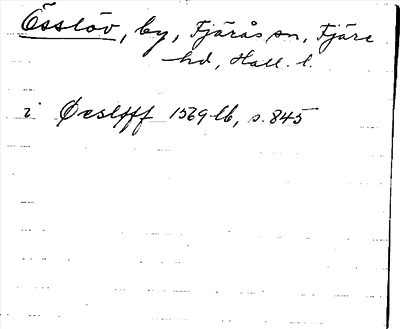 Össlöv, by, Fjärås sn, Fjäre
hd, Hall. l.
i Øeslöff 1569 lb, s. 845